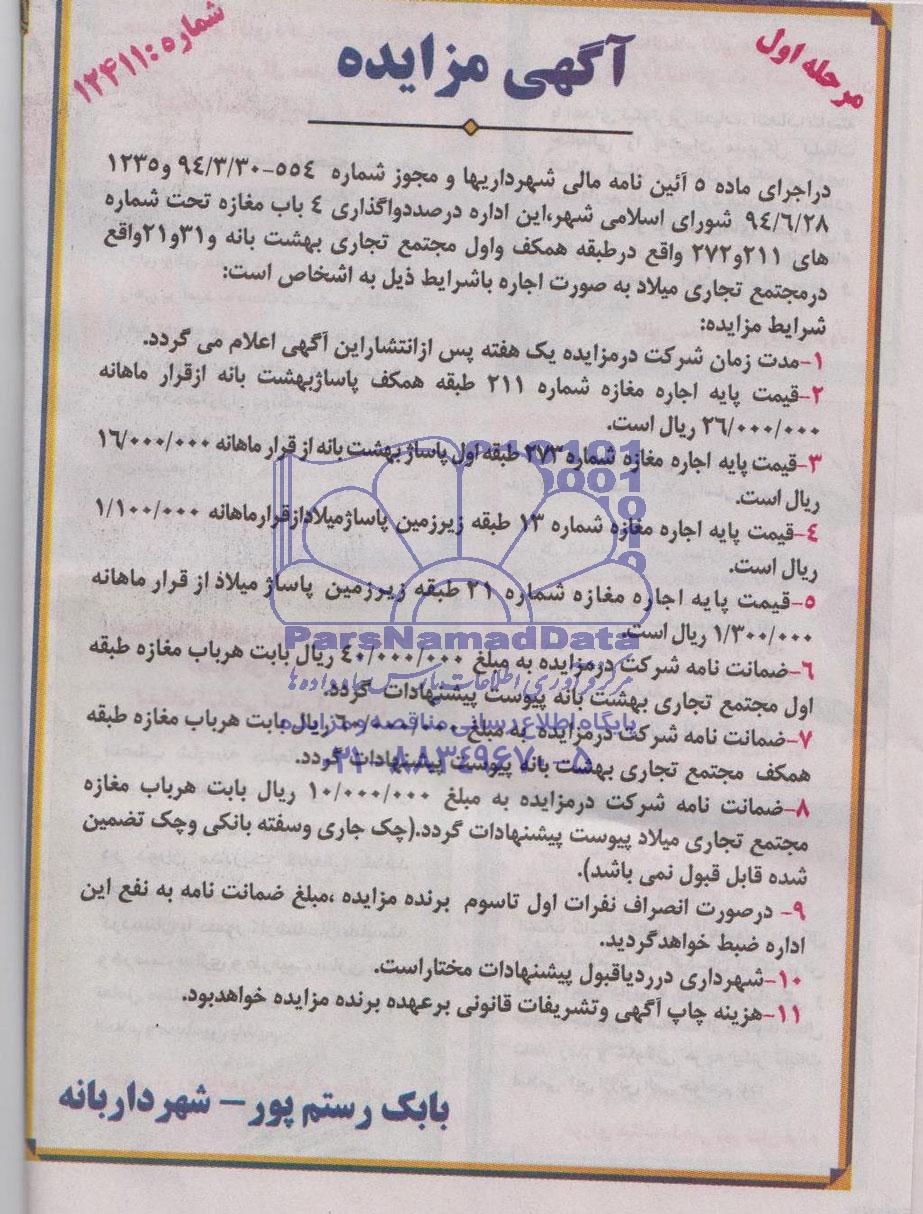 مرحله اول
شماره: ۱۲۴۱۱
آگهی مزایده
دراجرای ماده ۵ آئین نامه مالی شهرداریها و مجوز شماره ۵۵۴-۹۴/۳/۳۰ و۱۲۳۵
۹۴/۶/۲۸ شورای اسلامی شهر،این اداره درصددواگذاری ٤ باب مغازه تحت شماره
های ۲۱۱و۲۷۲ واقع درطبقه همکف واول مجتمع تجاری بهشت بانه و۳۱و۲۱واقع
درمجتمع تجاری میلاد به صورت اجاره باشرایط ذیل به اشخاص است:
شرایط مزایده:
۱-مدت زمان شرکت درمزایده یک هفته پس ازانتشاراین آگهی اعلام می گردد.
۲-قیمت پایه اجاره مغازه شماره ۲۱۱ طبقه همکف پاساژبهشت بانه ازقرار ماهانه
۲٦/۰۰۰/۰۰۰ ریال است.
۳-قیمت پایه اجاره مغازه شماره ۲۷۳ طبقه اول پاساژ بهشت بانه از قرار ماهانه ۱٦/۰۰۰/۰۰۰
ریال است.
٤-قیمت پایه اجاره مغازه شماره ۱۳ طبقه زیرزمین پاساژمیلادازقرارماهانه ۱/۱۰۰/۰۰۰
ریال است.
۵-قیمت پایه اجاره مغازه شماره ۲۱ طبقه زیرزمین پاساژ میلاد از قرار ماهانه
۱/۳۰۰/۰۰۰ ریال است.
ParsNamadData
٦-ضمانت نامه شرکت درمزایده به مبلغ ٤۰/۰۰۰/۰۰۰ ریال بابت هرباب مغازه طبقه
مرکز فرآوری اطلاعات پارس نماد داده ها
اول مجتمع تجاری بهشت بانه پیوست پیشنهادات گردد.
پایگاه اطلاع رسانی مناقصه و مزایده
۷-ضمانت نامه شرکت درمزایده به مبلغ ریال بابت هرباب مغازه طبقه
همکف مجتمع تجاری بهشت بانه پیوست پیشنهادات گردد.
۰۲۱-۸۸۳٤۹٦۷۰-۵
۸-ضمانت نامه شرکت درمزایده به مبلغ ۱۰/۰۰۰/۰۰۰ ریال بابت هرباب مغازه
مجتمع تجاری میلاد پیوست پیشنهادات گردد.(چک جاری وسفته بانکی وچک تضمین
شده قابل قبول نمی باشد).
۹- درصورت انصراف نفرات اول تاسوم برنده مزایده ،مبلغ ضمانت نامه به نفع این
اداره ضبط خواهدگردید.
۱۰-شهرداری درردیاقبول پیشنهادات مختاراست.
۱۱-هزینه چاپ آگهی وتشریفات قانونی برعهده برنده مزایده خواهدبود.
بابک رستم پور- شهرداربانه